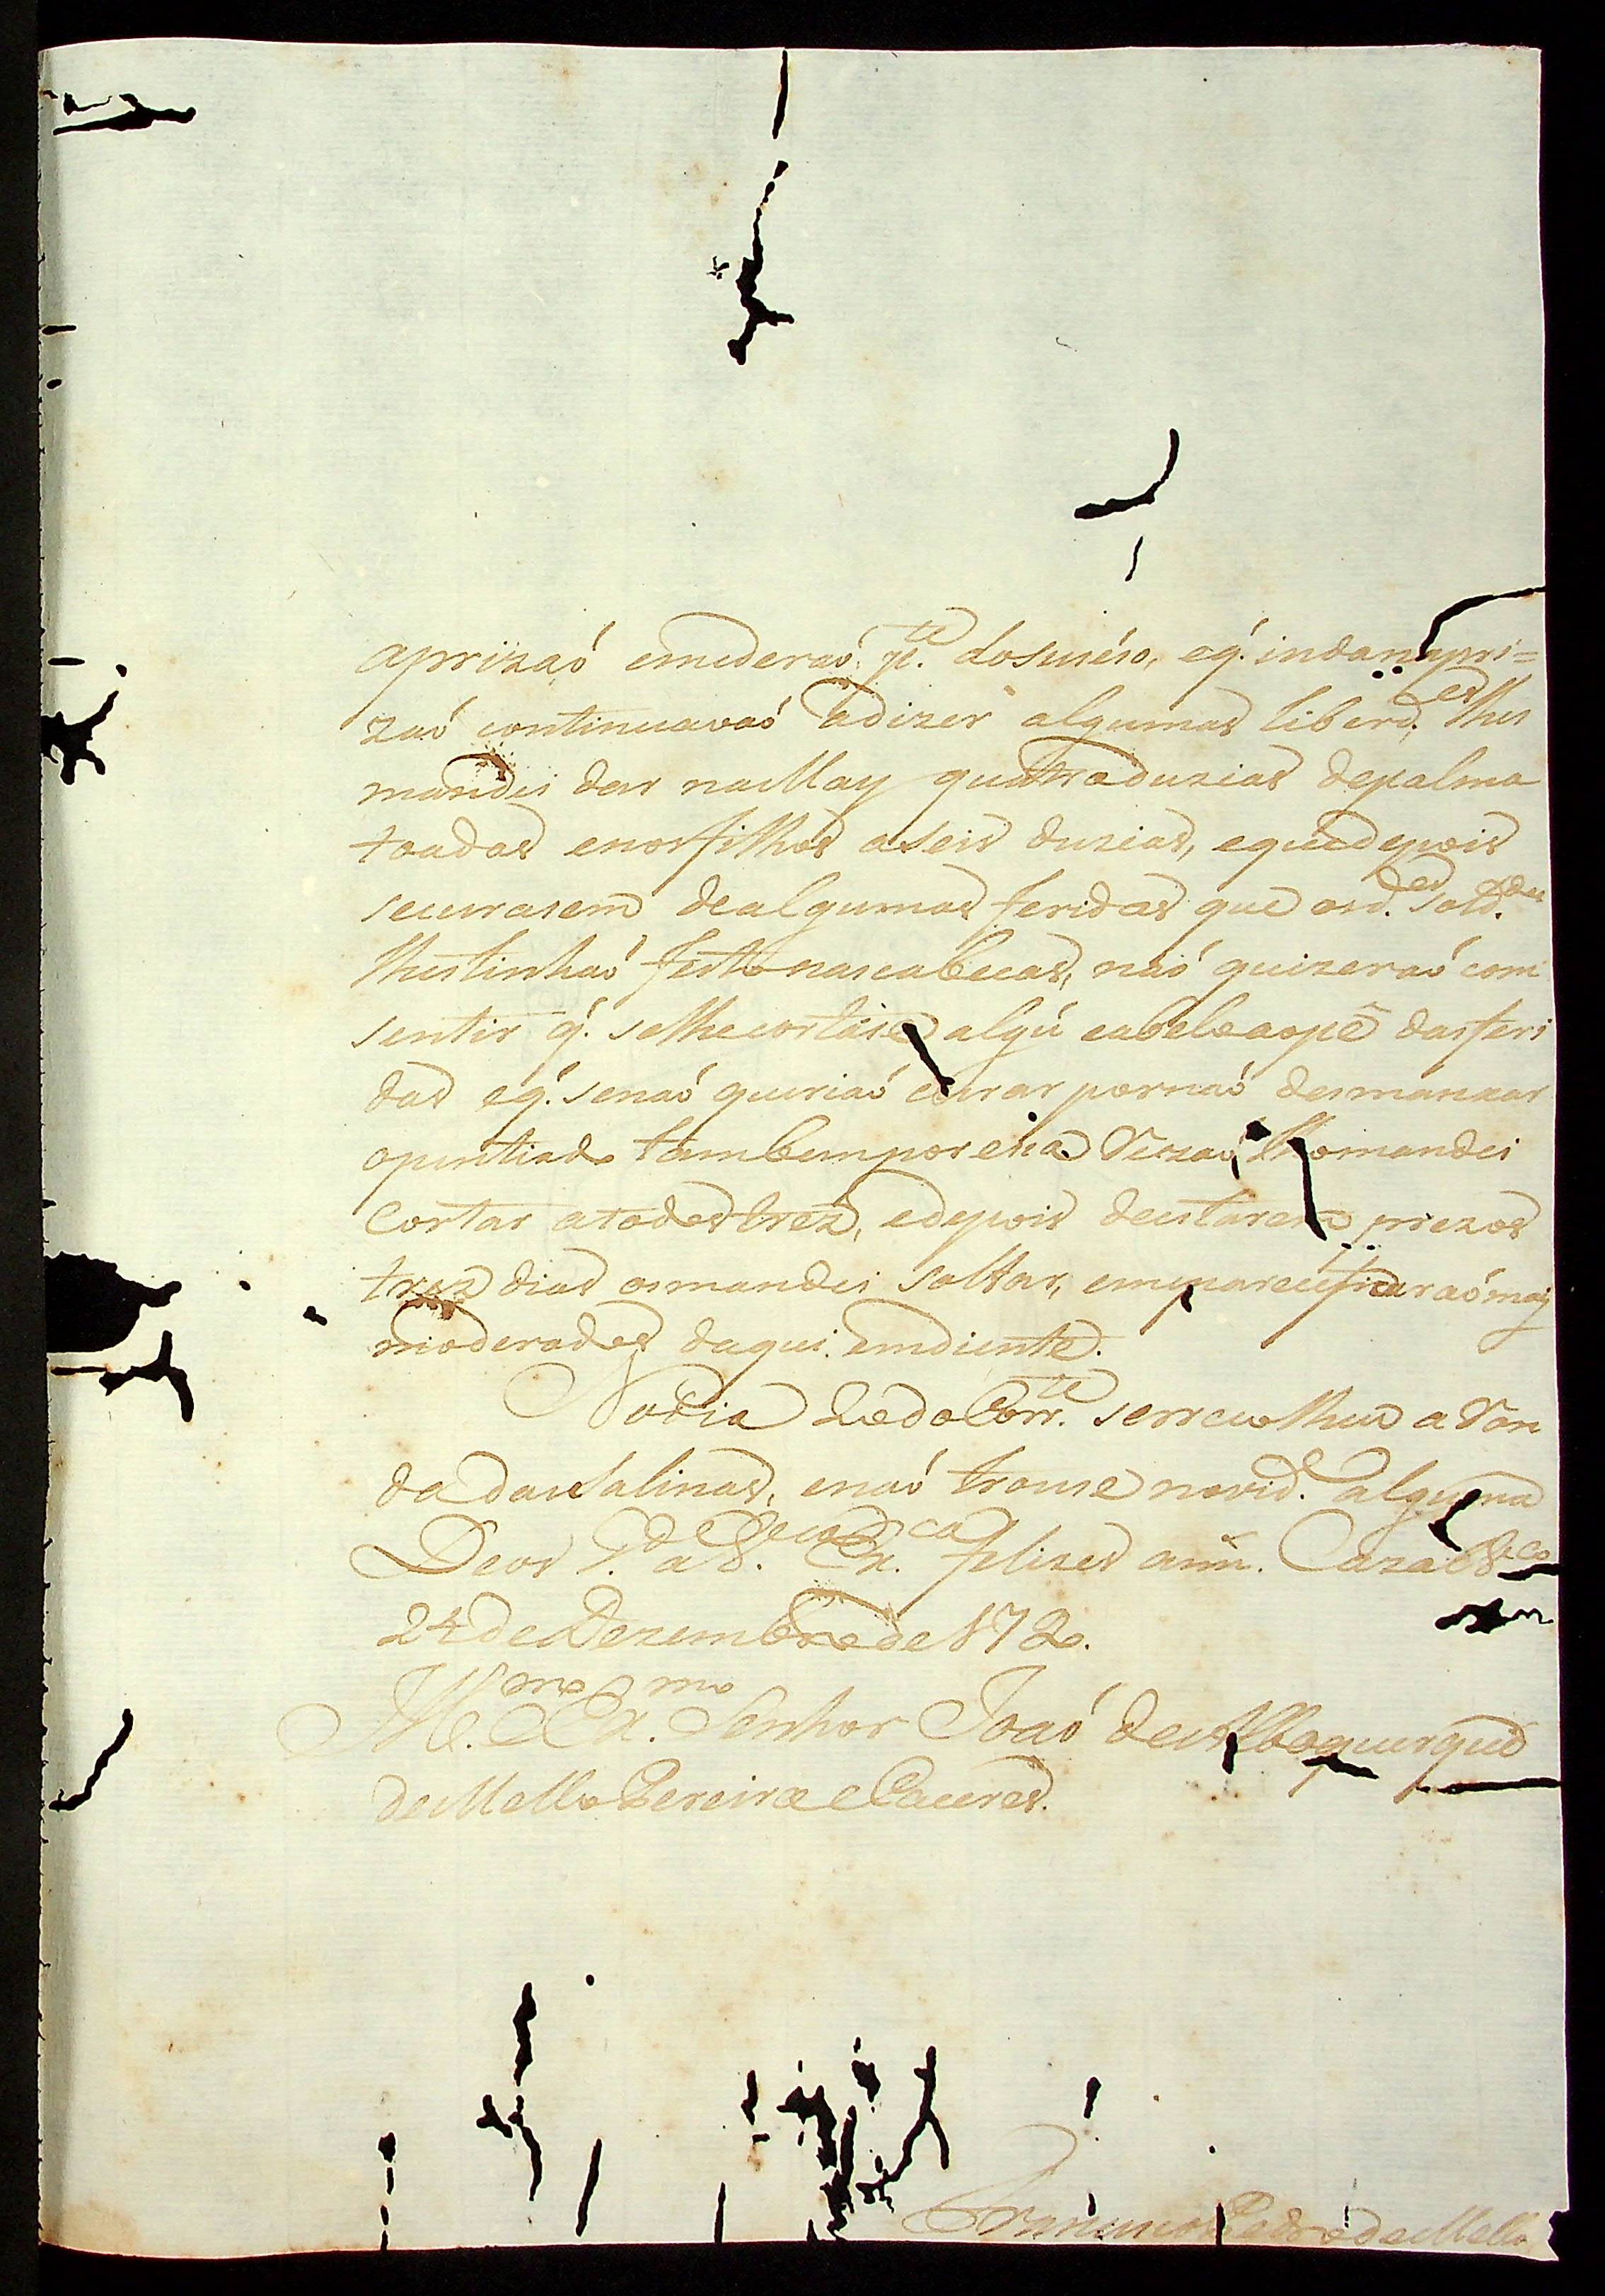 aprizaó emederaó p.te dosuséso, eq́. inda napri=
zaó continuavaó adizer algumas liberd.es lhes
mandei dar na May quatro duzias depalma
toadas enosfilhos aseis duzias, eque depois
securasem dealgumas feridas que osd.es Sold.dos
lhestinhaó feito nascabecas, naó quizeraó com
sentir q́. selhecortase algú cabelo aopé dasferi
das eq́. senaó queriaó curar pornaó desmanxar
opentiado tambempor esta Rezaó lho mandei
Cortar atodos trez, edepois deestarem prezos
trez dias osmandei soltar, emeparece ficaraó mais
moderados daqui emdiente.
No dia 2 do Corr.te serrecolheu a Ron
da das Salinas, enaó trouse novid.e alguma
Deos G.de a V. Ex.ca felizes ann. Caza B.ca
24 de Dezembro de 1792.
Ill.mo e Ex.mo Senhor Joaó de Alboquerque
de Mello Pereira e Caceres.
Francisco Pedro de Mello